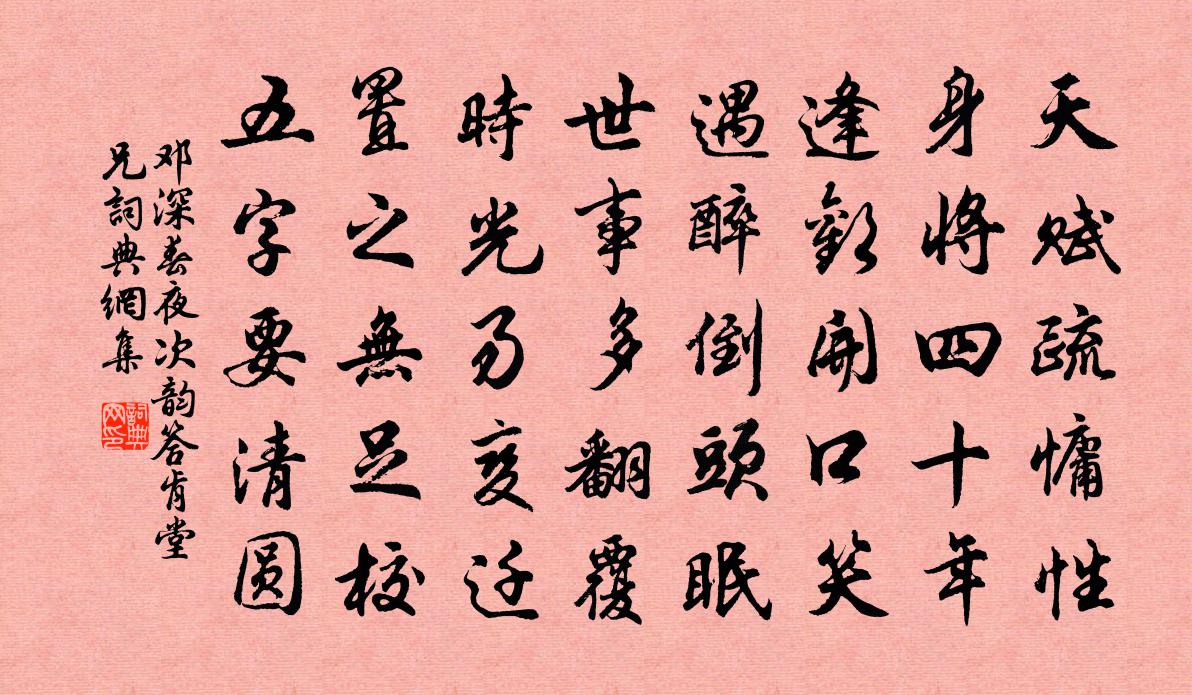 天賦疏慵性
身將四十年
逢歡開口笑
遇醉倒頭眠
世事多翻覆
時光易變遷
置之無足校
五字要清圆
邓深春夜次韵答肯堂
兄詞典網集
詞典
网印